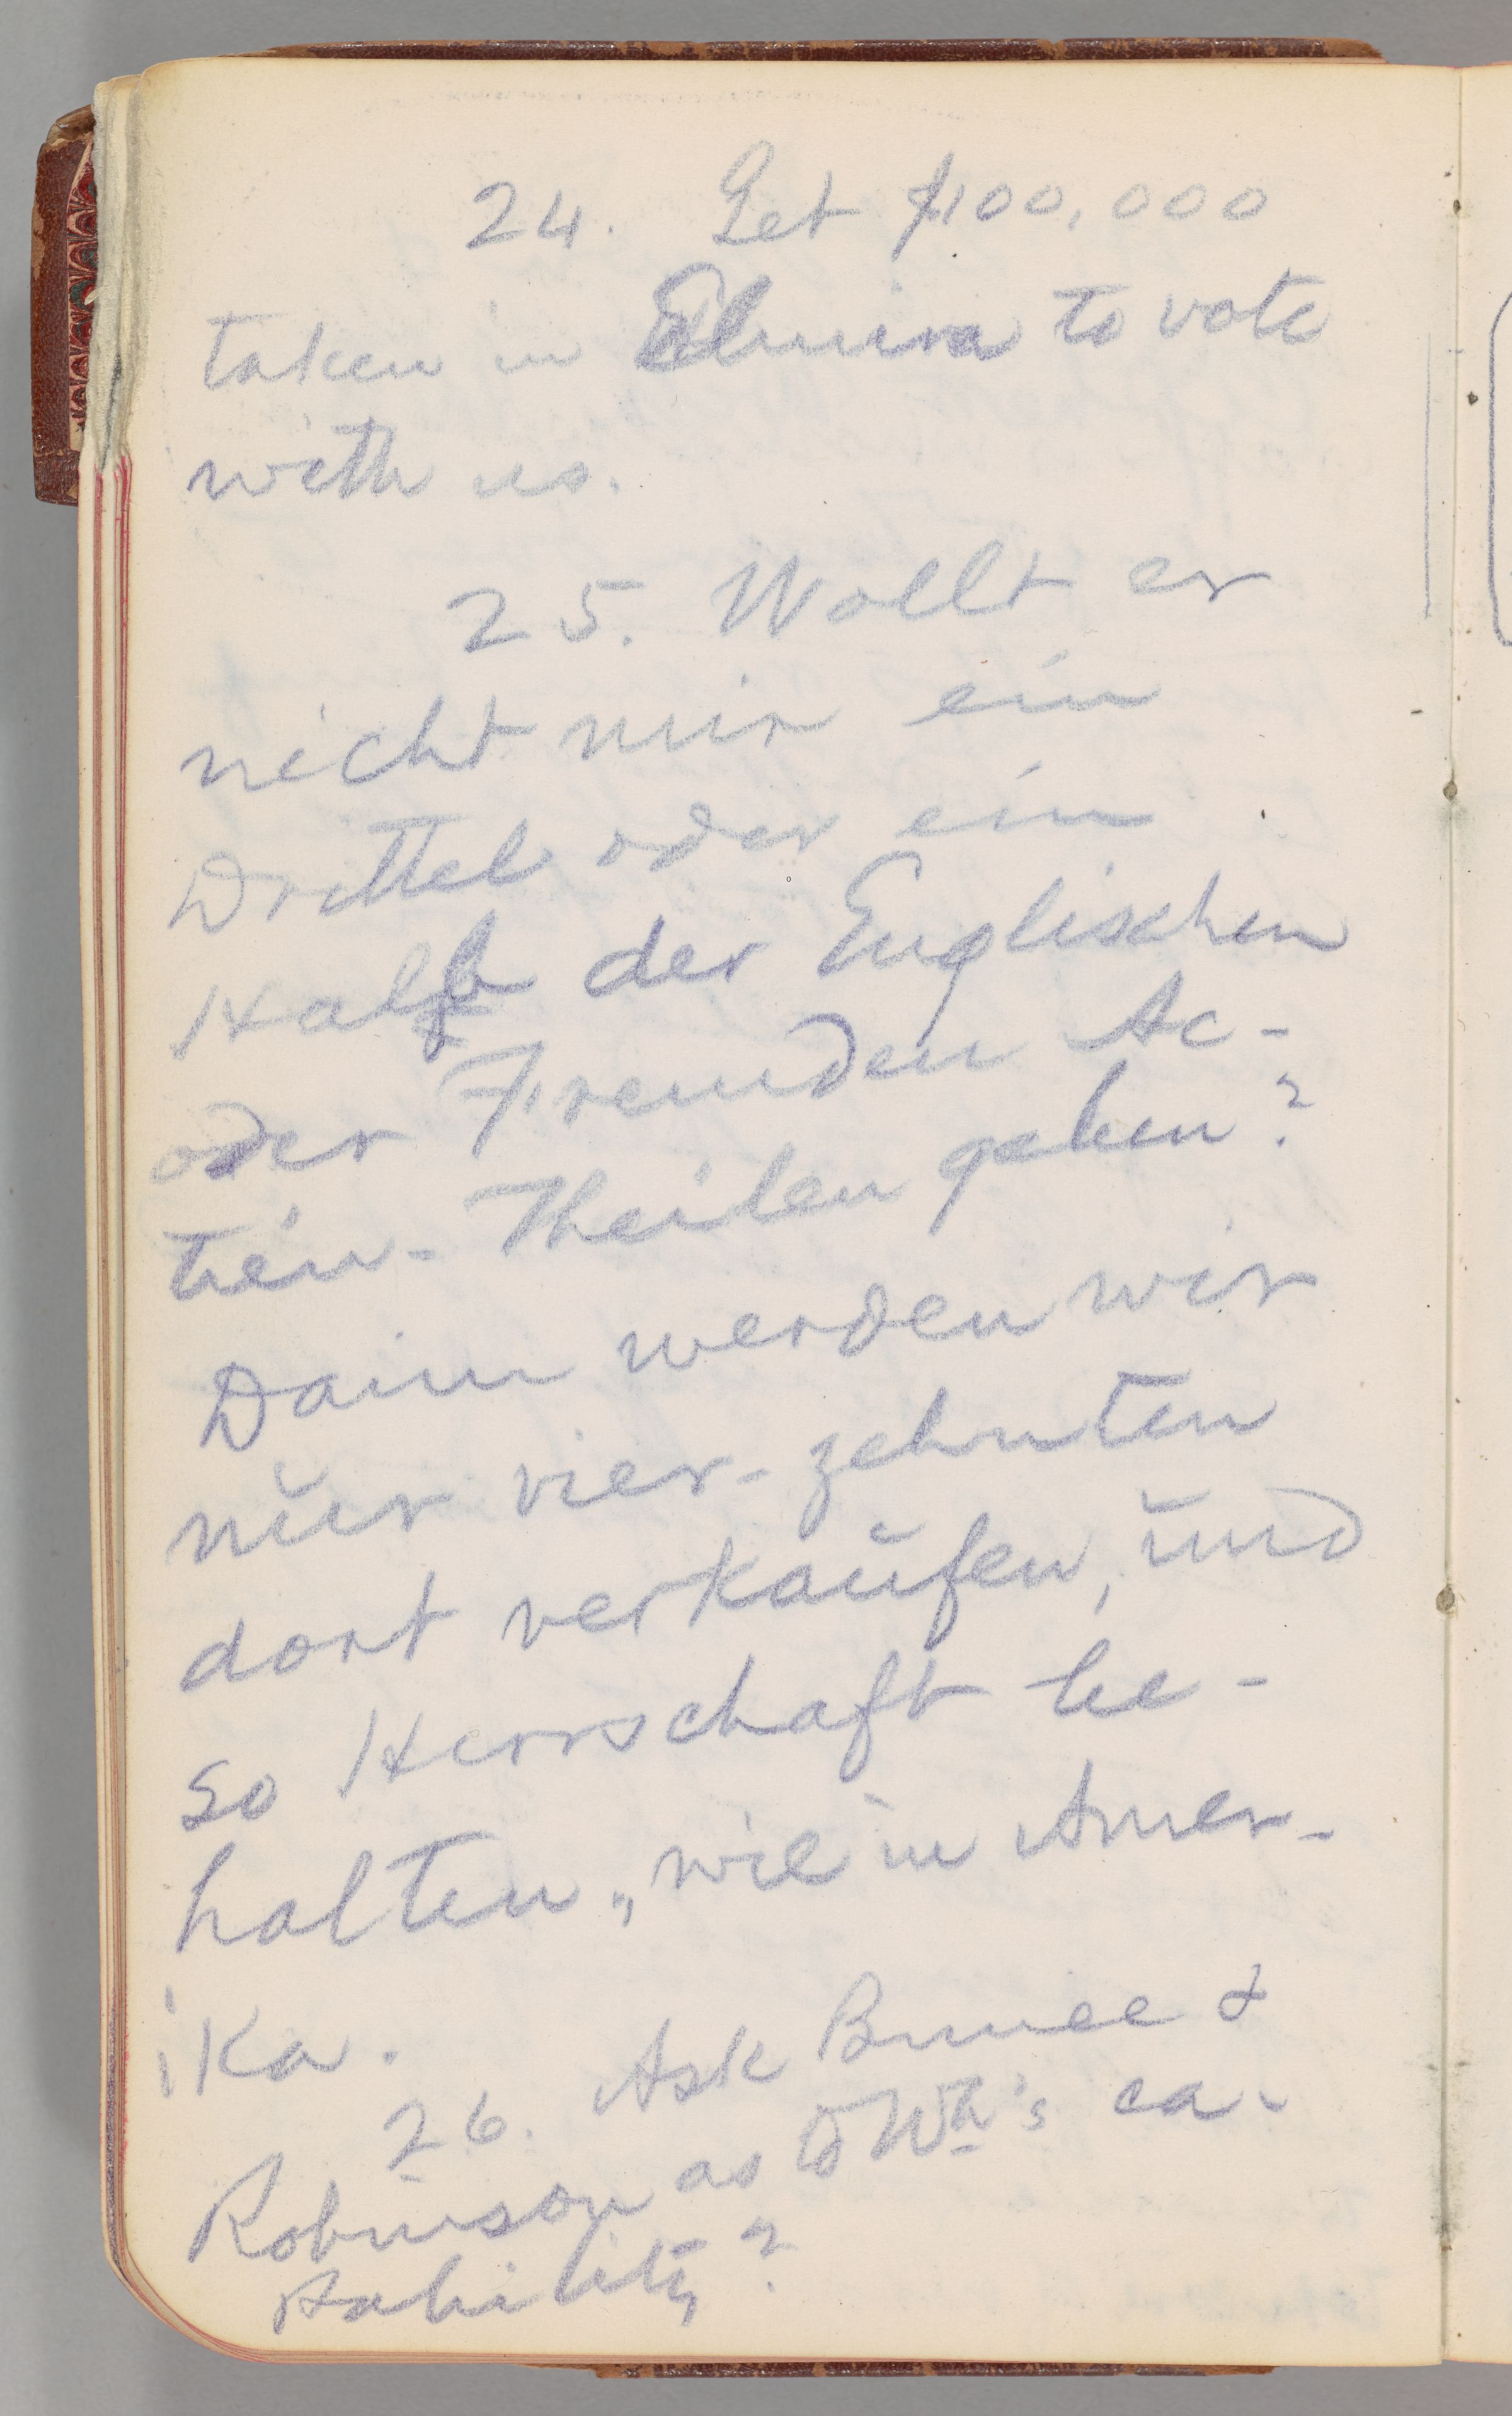 24. Get $100,000
taken in Elmira to vote
with us.
25. Wollt er
nicht mir ein
Drittel oder ein
Halb der Englischen
oder Fremden Ac-
tien-Theilen geben?
Dann werden wir
nŭr vier-zehnten
dort verkaŭfen, ŭnd
so Herrschaft be-
halten, wie in Amer-
ika.
26. Ask &
Robinson as to Wh's ca-
pability?